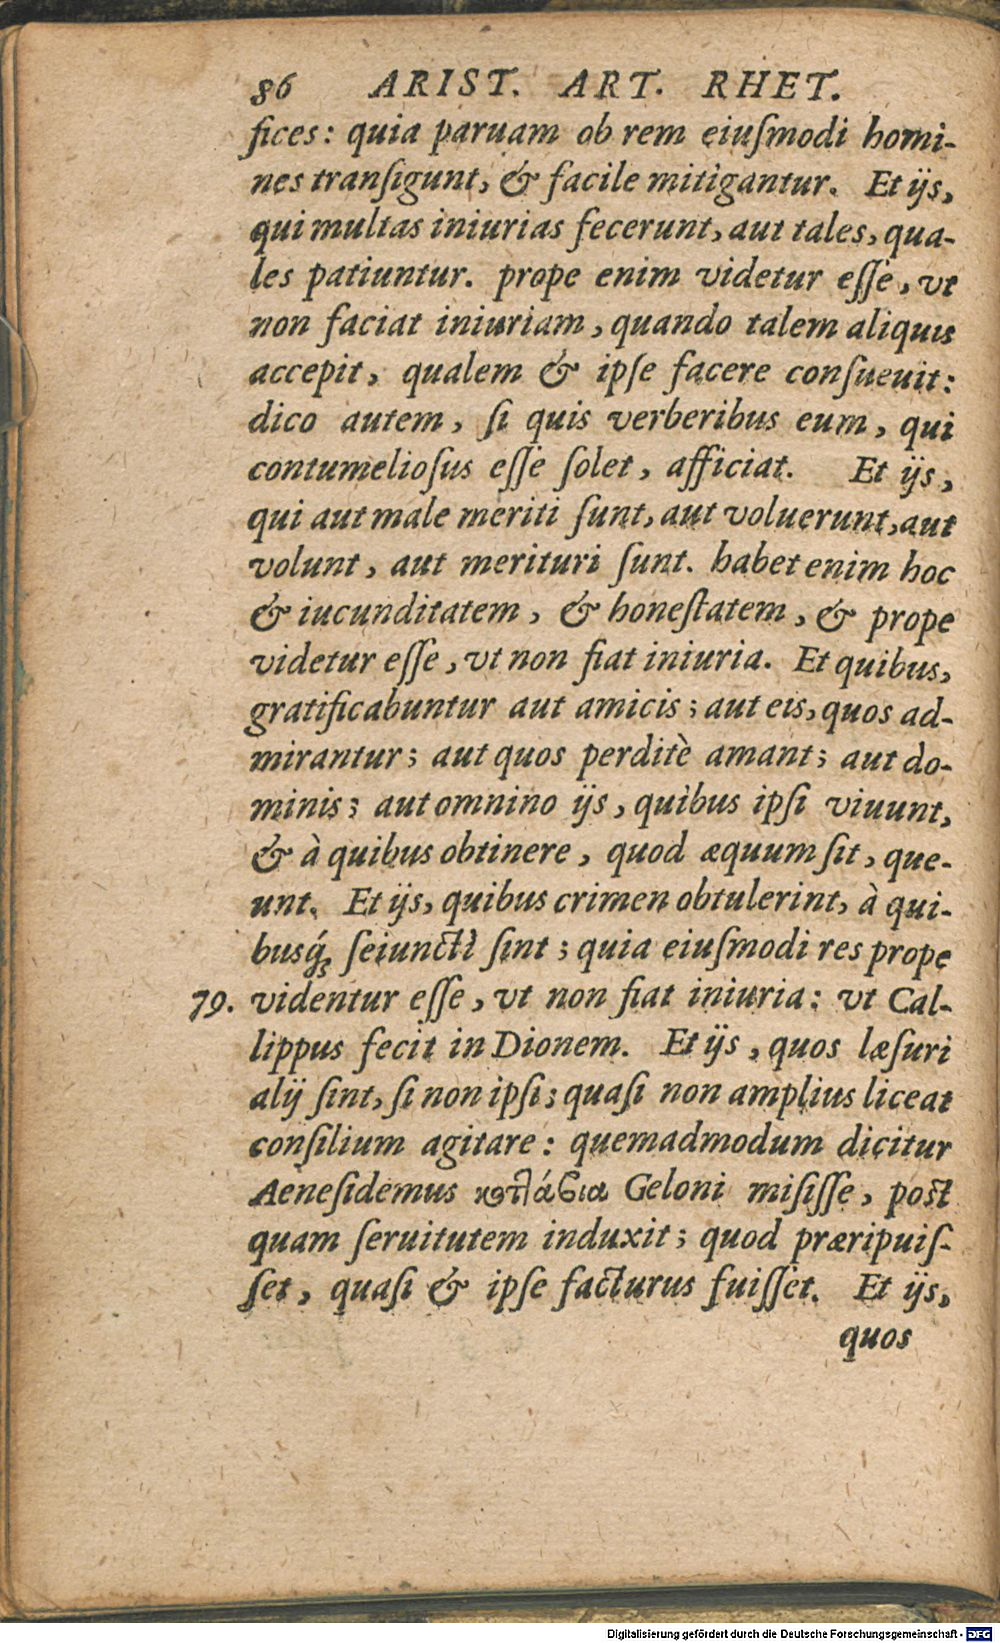 86 ARIST. ART. RHET.
fices: quia paruam ob rem eiuſmodi homi-
nes tranſigunt, & facile mitigantur. Et ijs,
qui multas iniurias fecerunt, aut tales, qua-
les patiuntur. prope enim videtur eſſe, vt
non faciat iniuriam, quando talem aliquis
accepit, qualem & ipſe facere conſueuit:
dico autem, ſi quis verberibus eum, qui
contumelioſus eſſe ſolet, afficiat. Et ijs,
qui aut male meriti ſunt, aut voluerunt, aut
volunt, aut merituri ſunt. habet enim hoc
& iucunditatem, & honeſtatem, & prope
videtur eſſe, vt non fiat iniuria. Et quibus,
gratificabuntur aut amicis; aut eis, quos ad-
mirantur; aut quos perditè amant; aut do-
minis; aut omnino ijs, quibus ipſi viuunt,
& à quibus obtinere, quod æquum ſit, que-
unt. Et ijs, quibus crimen obtulerint, à qui-
busq́; ſeiuncti ſint; quia eiuſmodi res prope
79. videntur eſſe, vt non fiat iniuria: vt Cal-
lippus fecit in Dionem. Et ijs, quos læſuri
alij ſint, ſi non ipſi; quaſi non amplius liceat
conſilium agitare: quemadmodum dicitur
Aeneſidemus κοττάβια Geloni miſiſſe, poſt
quam ſeruitutem induxit; quod præripuiſ-
ſet, quaſi & ipſe facturus fuiſſet. Et ijs,
quos
Digitalisierung gefördert durch die Deutsche Forschungsgemeinschaft - DFG